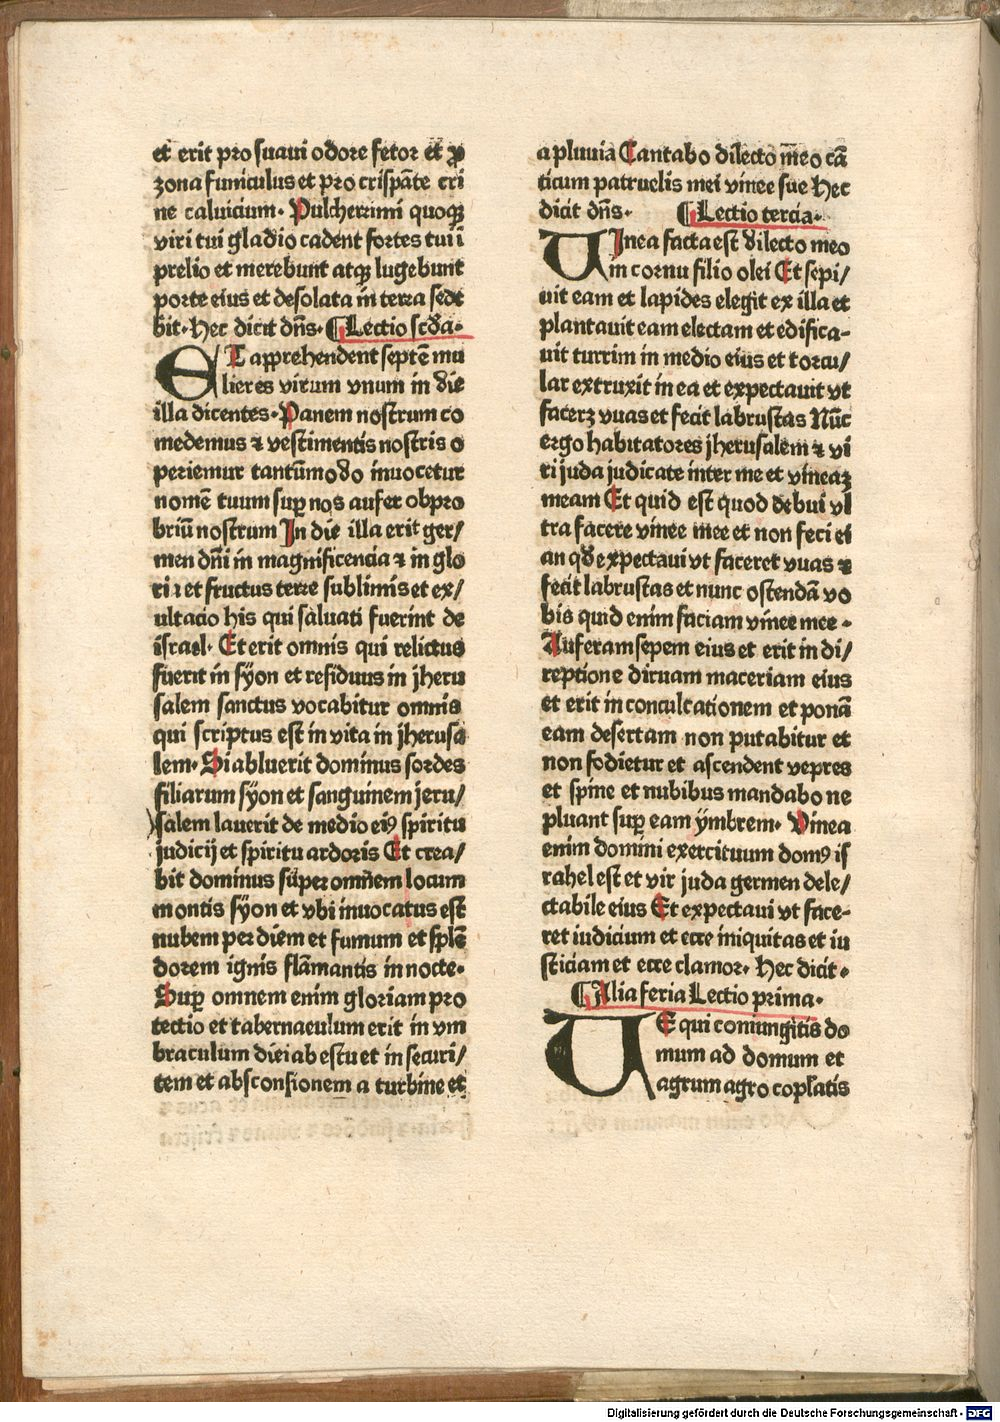 et erit pro suaui odore fetor et ꝓ
zona funiculus et pro crispāte cri
ne caluicium. Pulcherrimi quoqꝫ
viri tui gladio cadent fortes tui i
prelio et merebunt atqꝫ lugebunt
porte eius et desolata in terra sede
bit. Hec dicit dn̄s. ¶ Lectio scd̄a.
ET apprehendent septē mu
lieres virum vnum in die
illa dicentes. Panem nostrum co
medemus ⁊ vestimentis nostris o
periemur tantūmodo inuocetur
nomē tuum suꝑ nos aufer obpro
briū nostrum In die illa erit ger/
men dn̄i in magnificencia ⁊ in glo
ria et fructus terre sublimis et ex/
ultacio his qui saluati fuerint de
israel. Et erit omnis qui relictus
fuerit in sÿon et residuus in jheru
salem sanctus vocabitur omnis
qui scriptus est in vita in jherusa
lem. Si abluerit dominus sordes
filiarum sÿon et sanguinem jeru/
salem lauerit de medio eiꝰ spiritu
judicij et spiritu ardoris Et crea/
bit dominus super omnem locum
montis sÿon et vbi inuocatus est
nubem per diem et fumum et splē
dorem ignis flāmantis in nocte.
Suꝑ omnem enim gloriam pro
tectio et tabernaculum erit in vm
braculum diei ab estu et in securi/
tem et absconsionem a turbine et
a pluuia Cantabo dilecto meo cā
ticum patruelis mei vinee sue Hec
dicit dn̄s. ¶ Lectio tercia.
VInea facta est dilecto meo
in cornu filio olei Et sepi/
uit eam et lapides elegit ex illa et
plantauit eam electam et edifica-
uit turrim in medio eius et torcu/
lar extruxit in ea et expectauit vt
facerꝫ vuas et fecit labrustas Nūc
ergo habitatores jherusalem ⁊ vi
ri juda judicate inter me et vineaꝫ
meam Et quid est quod debui vl
tra facere vinee mee et non feci ei
an qd̄ expectaui vt faceret vuas ⁊
fecit labrustas et nunc ostendā vo
bis quid enim faciam vinee mee.
Auferam sepem eius et erit in di/
reptione diruam maceriam eius
et erit in conculcationem et ponā
eam desertam non putabitur et
non fodietur et ascendent vepres
et spine et nubibus mandabo ne
pluant suꝑ eam ÿmbrem. Vinea
enim domini exercituum domꝰ is
rahel est et vir juda germen dele/
ctabile eius Et expectaui vt face-
ret iudicium et ecce iniquitas et iu
sticiam et ecce clamor. Hec dicit.
¶ Alia feria Lectio prima.
VE qui coniungitis do
mum ad domum et
agrum agro coplatis
Digitalisierung gefördert durch die Deutsche Forschungsgemeinschaft - DFG